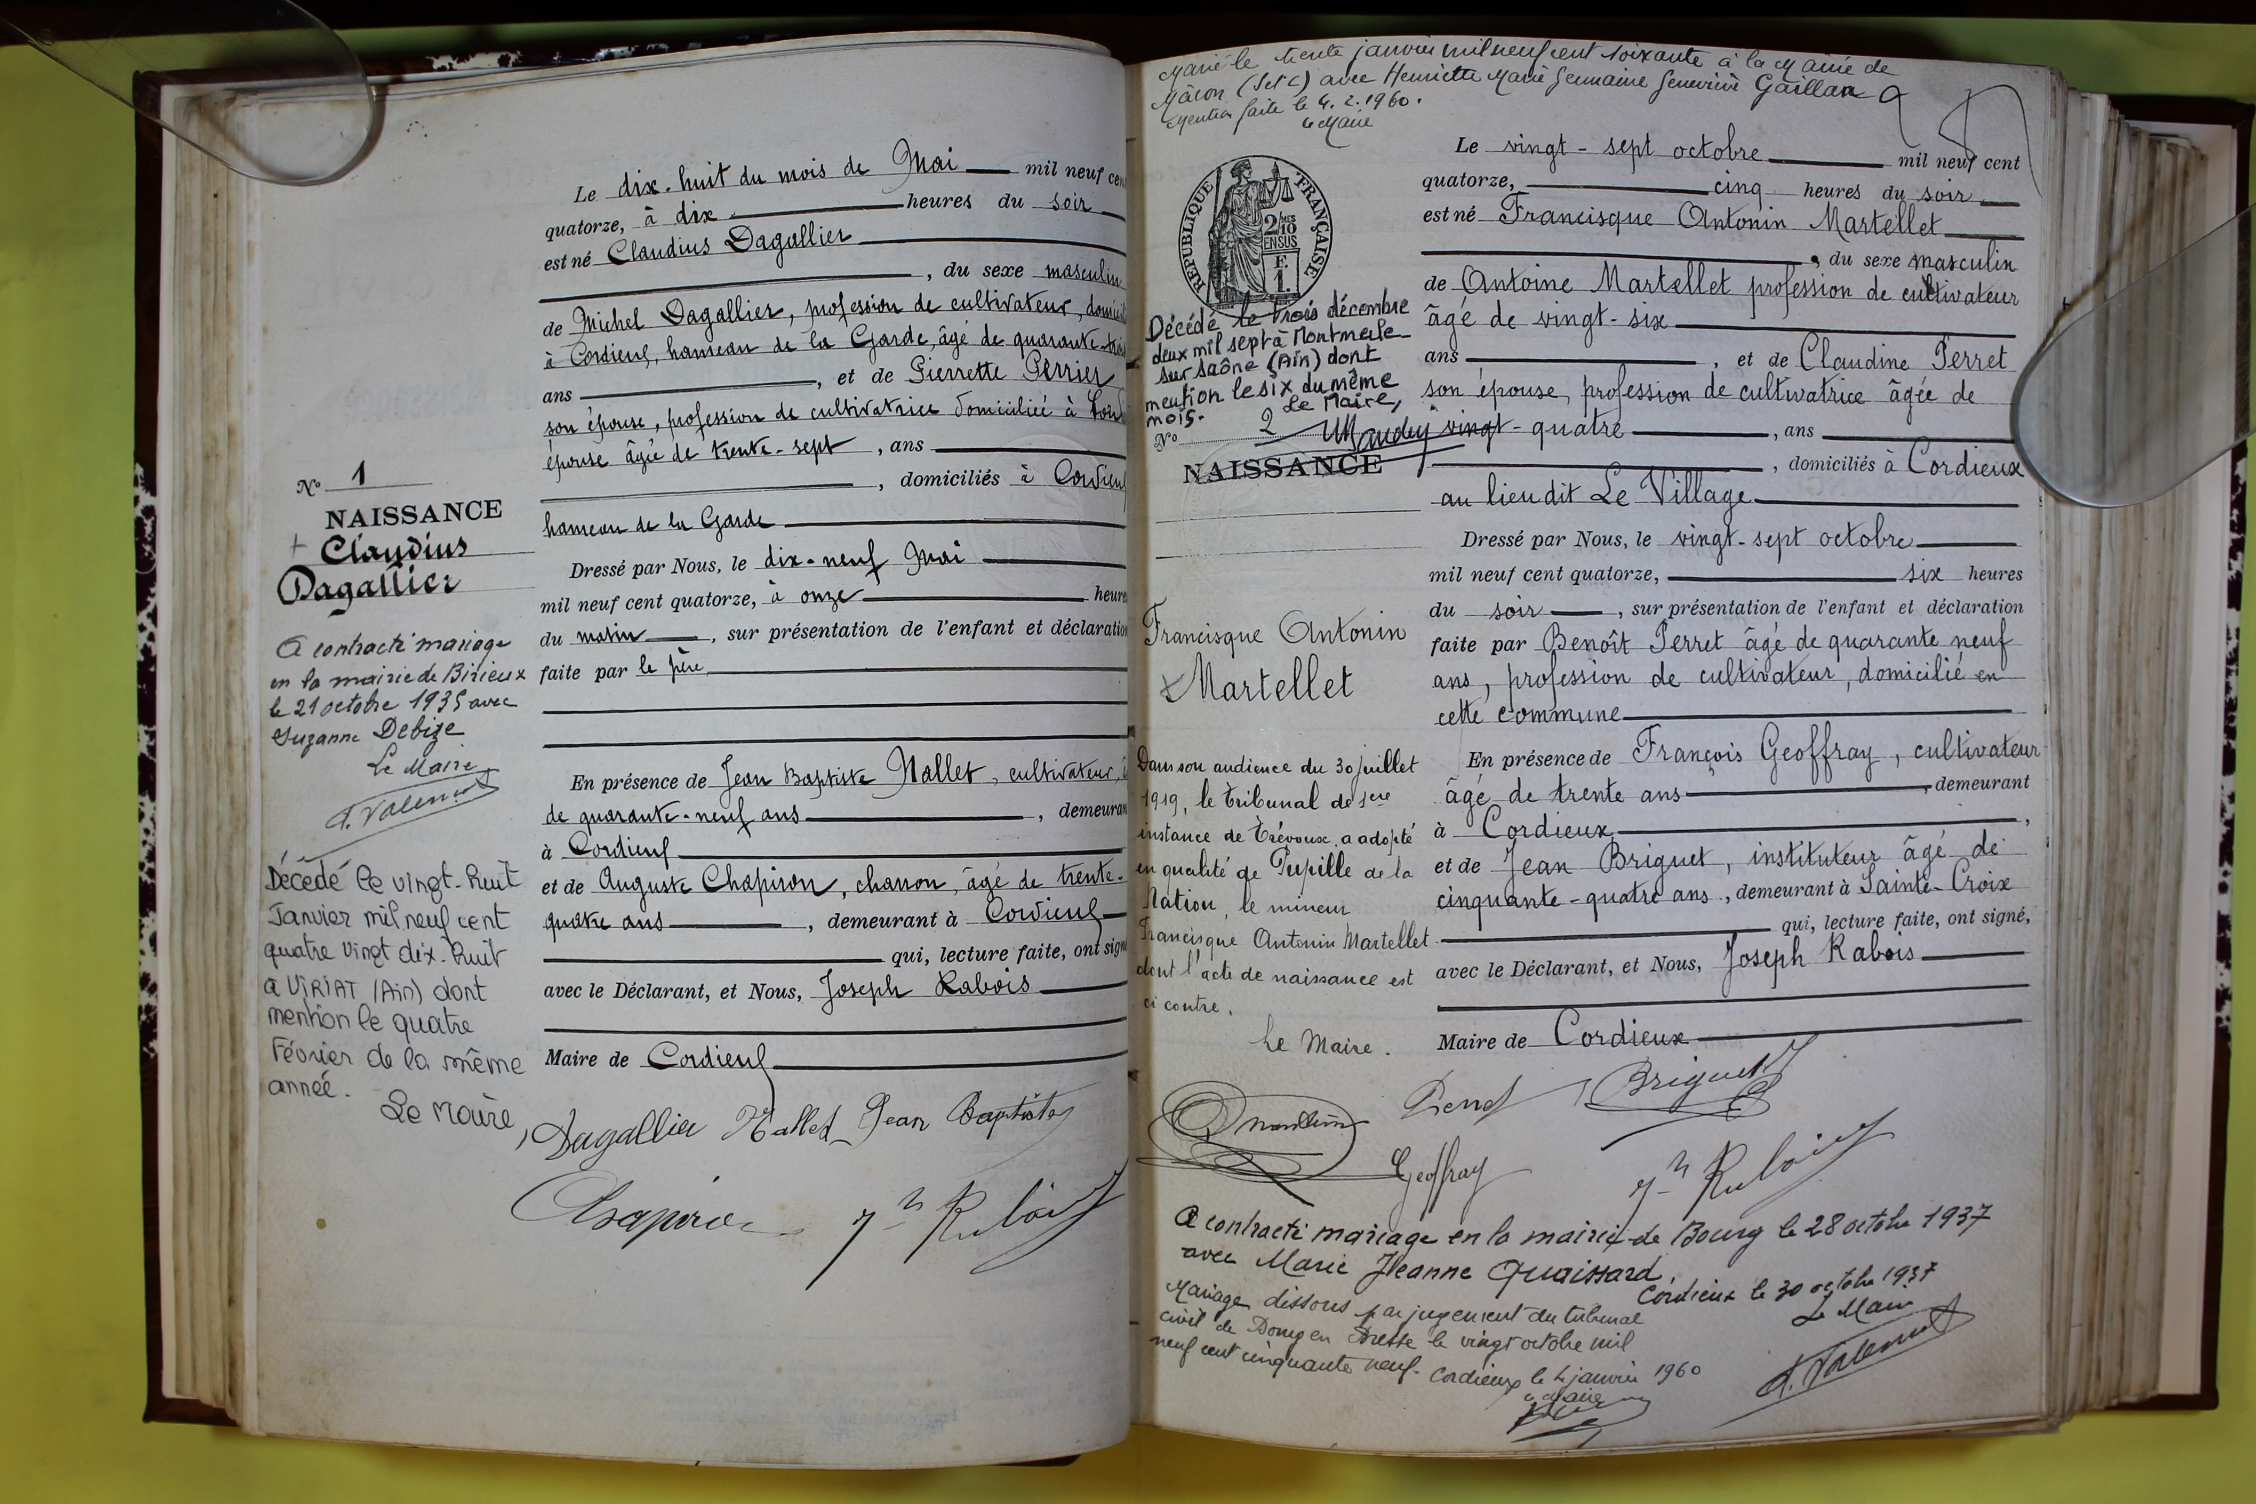 Le dix-huit du mois de Mai mil neuf cen
quatorze, à dix heures du soir
est né Claudius Dagallier
, du sexe masculin
de Michel Dagallier, profession de cultivateur, domicil
à Cordieux, hameau de la Garde, âgé de quarante-trois
ans , et de Pierrette Perrier
son épouse, profession de cultivatrice domiciliée à
épouse âgée de trente-sept , ans
, domiciliés à Cordieux
hameau de la Garde
Dressé par Nous, le dix-neuf Mai
mil neuf cent quatorze, à onze heure
du matin , sur présentation de l'enfant et déclaration
faite par le père
En présence de Jean Baptiste Nallet, cultivateur,
de quarante-neuf ans , demeuran
à Cordieux
et de Auguste Chapiron, charron, âgé de trente-
quatre ans , demeurant à Cordieux
qui, lecture faite, ont signé
avec le Déclarant, et Nous, Joseph Rabois
Maire de Cordieux
Dagallier Nallet Jean Baptiste
Chapiron Jh Rabois
No 1
NAISSANCE
Claudius
Dagallier
A contracté mariage
en la mairie de Birieux
le 21 octobre 1935 avec
Suzanne Debize
Le Maire
Décédé le vingt-huit
Janvier mil neuf cent
quatre vingt dix-huit
à VIRIAT (Ain) dont
mention le quatre
Février de la même
année.
Le Maire,
Marié le trente janvier mil neuf cent soixante à la Mairie de
Mâcon (S et L) avec Henriette Marie Germaine Geneviève Gaillard
Mention faite le 4.2.1960.
Le Maire
RÉPUBLIQUE FRANÇAISE
2/10
MES
EN SUS
E.
1.
Décédé le trois décembre
deux mil sept à Montmerle-
sur Saône (Ain) dont
mention le six du même
mois. Le Maire,
No 2
NAISSANCE
Francisque Antonin
Martellet
Dans son audience du 30 juillet
1919, le tribunal de 1ère
instance de Trévoux, a adopté
en qualité de Pupille de la
Nation, le mineur
Francisque Antonin Martellet
dont l'acte de naissance est
ci contre.
Le Maire.
Le vingt-sept octobre mil neuf cent
quatorze, cinq heures du soir
est né Francisque Antonin Martellet
, du sexe masculin
de Antoine Martellet profession de cultivateur
âgé de vingt-six
ans , et de Claudine Perret
son épouse, profession de cultivatrice âgée de
vingt-quatre , ans
, domiciliés à Cordieux
au lieu dit Le Village
Dressé par Nous, le vingt-sept octobre
mil neuf cent quatorze, six heures
du soir , sur présentation de l'enfant et déclaration
faite par Benoît Perret âgé de quarante neuf
ans, profession de cultivateur, domicilié en
cette commune
En présence de François Geoffray, cultivateur
âgé de trente ans , demeurant
à Cordieux ,
et de Jean Briguet, instituteur âgé de
cinquante-quatre ans, demeurant à Sainte-Croix
qui, lecture faite, ont signé,
avec le Déclarant, et Nous, Joseph Rabois
Maire de Cordieux
Perret Briguet
Geoffray Jh Rabois
A contracté mariage en la mairie de Bourg le 28 octobre 1937
avec Marie Jeanne Quaissard.
Cordieux le 30 octobre 1937
Le Maire
Mariage dissous par jugement du tribunal
civil de Bourg en Bresse le vingt octobre mil
neuf cent cinquante neuf. Cordieux le 4 janvier 1960
Le Maire